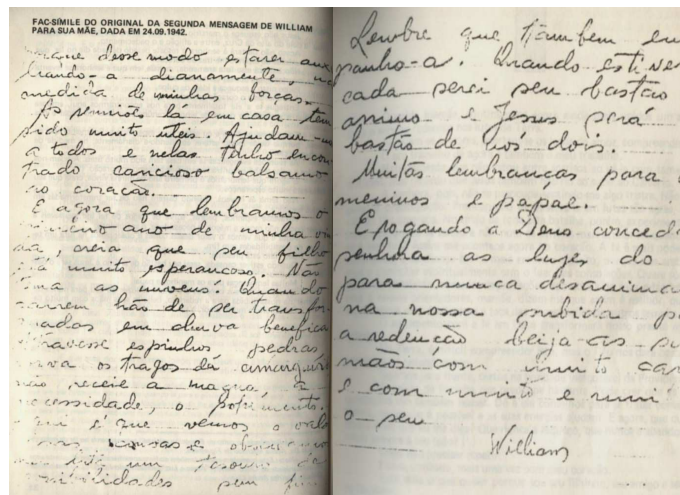 FAC-SÍMILE DO ORIGINAL DA SEGUNDA MENSAGEM DE WILLIAM
PARA SUA MÃE, DADA EM 24.09.1942.
porque desse modo estarei aux
liando-a diariamente, na
medida de minhas forças.
As reuniões lá em casa tem
sido muito úteis. Ajudam-nos
a todos e nelas tenho encon
trado caricioso balsamo
ao coração.
E agora que lembramos o
primeiro ano de minha
creia que seu filho
está muito esperançoso. Não
tema as nuvens! Quando
correm hão de ser transfor
madas em chuva benefica
Atravesse espinhos pedras,
sorva os tragos da amargura
não receie a magua, a
necessidade, o sofrimento.
Aqui é que vemos o
cousas e observamos
um tesouro de
possibilidades sem fim
Lembre que tambem eu
panho-a. Quando estiver
cada serei seu bastão
animo e Jesus será
bastão de nós dois.
Muitas lembranças para
meninos e papae.
E rogando a Deus conced
senhora as luzes do
para nunca desanima
na nossa subida p
a redenção beija-as su
mãos com muito car
e com muito e mui
o seu
William